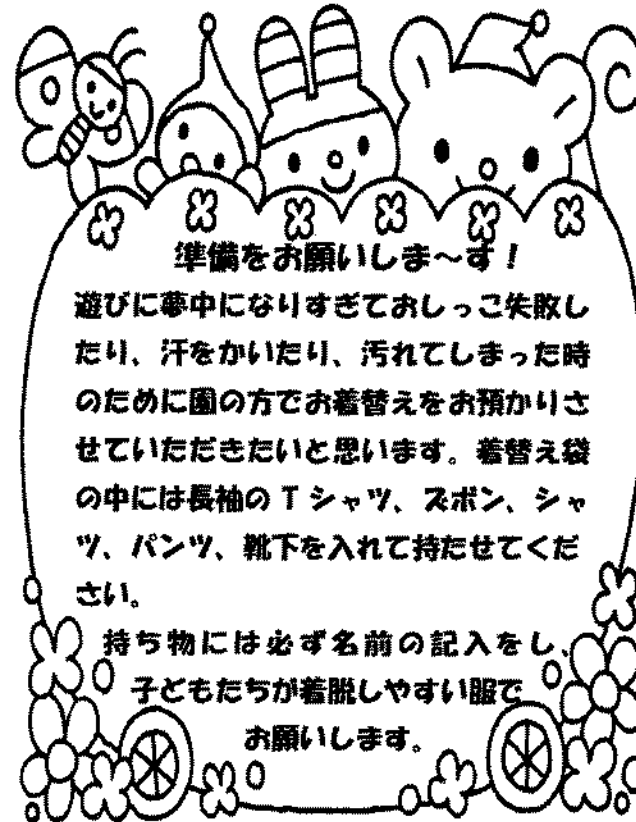 準備をお願いしま～す！
遊びに夢中になりすぎておしっこ失敗し
たり、汗をかいたり、汚れてしまった時
のために園の方でお着替えをお預かりさ
せていただきたいと思います。着替え袋
の中には長袖のTシャツ、ズボン、シャ
ツ、パンツ、靴下を入れて持たせてくだ
さい。
持ち物には必ず名前の記入をし、
子どもたちが着脱しやすい服で
お願いします。